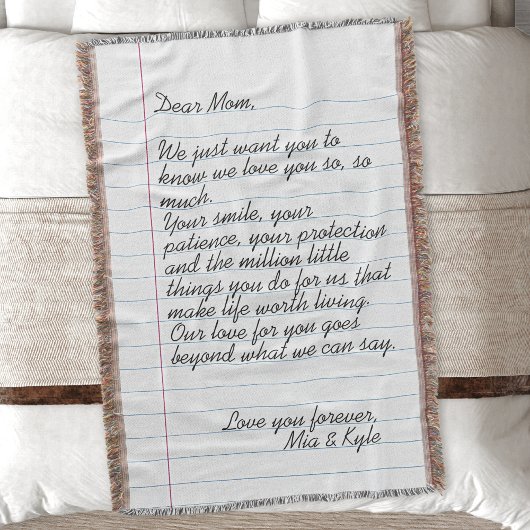 Dear Mom,
We just want you to
know we love you so, so
much.
Your smile, your
patience, your protection
and the million little
things you do for us that
make life worth living.
Our love for you goes
beyond what we can say.
Love you forever,
Mia & Kyle